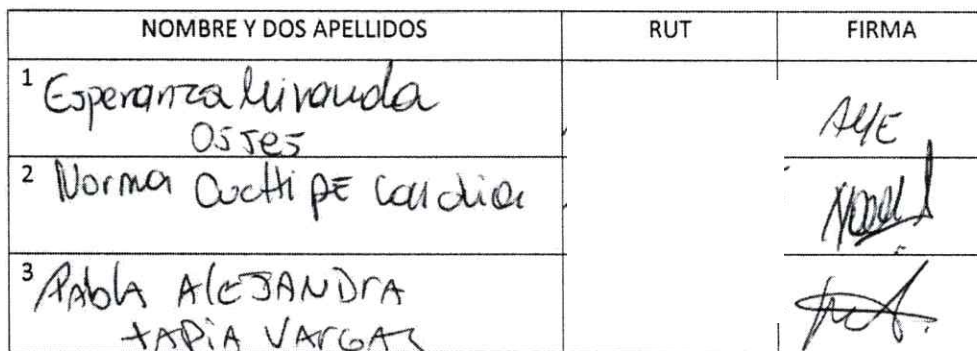 NOMBRE Y DOS APELLIDOS RUT FIRMA
1 Esperanza Miranda
Osses
2 Norma
3 Pabla AlEJANDrA
tAPiA VArGAS